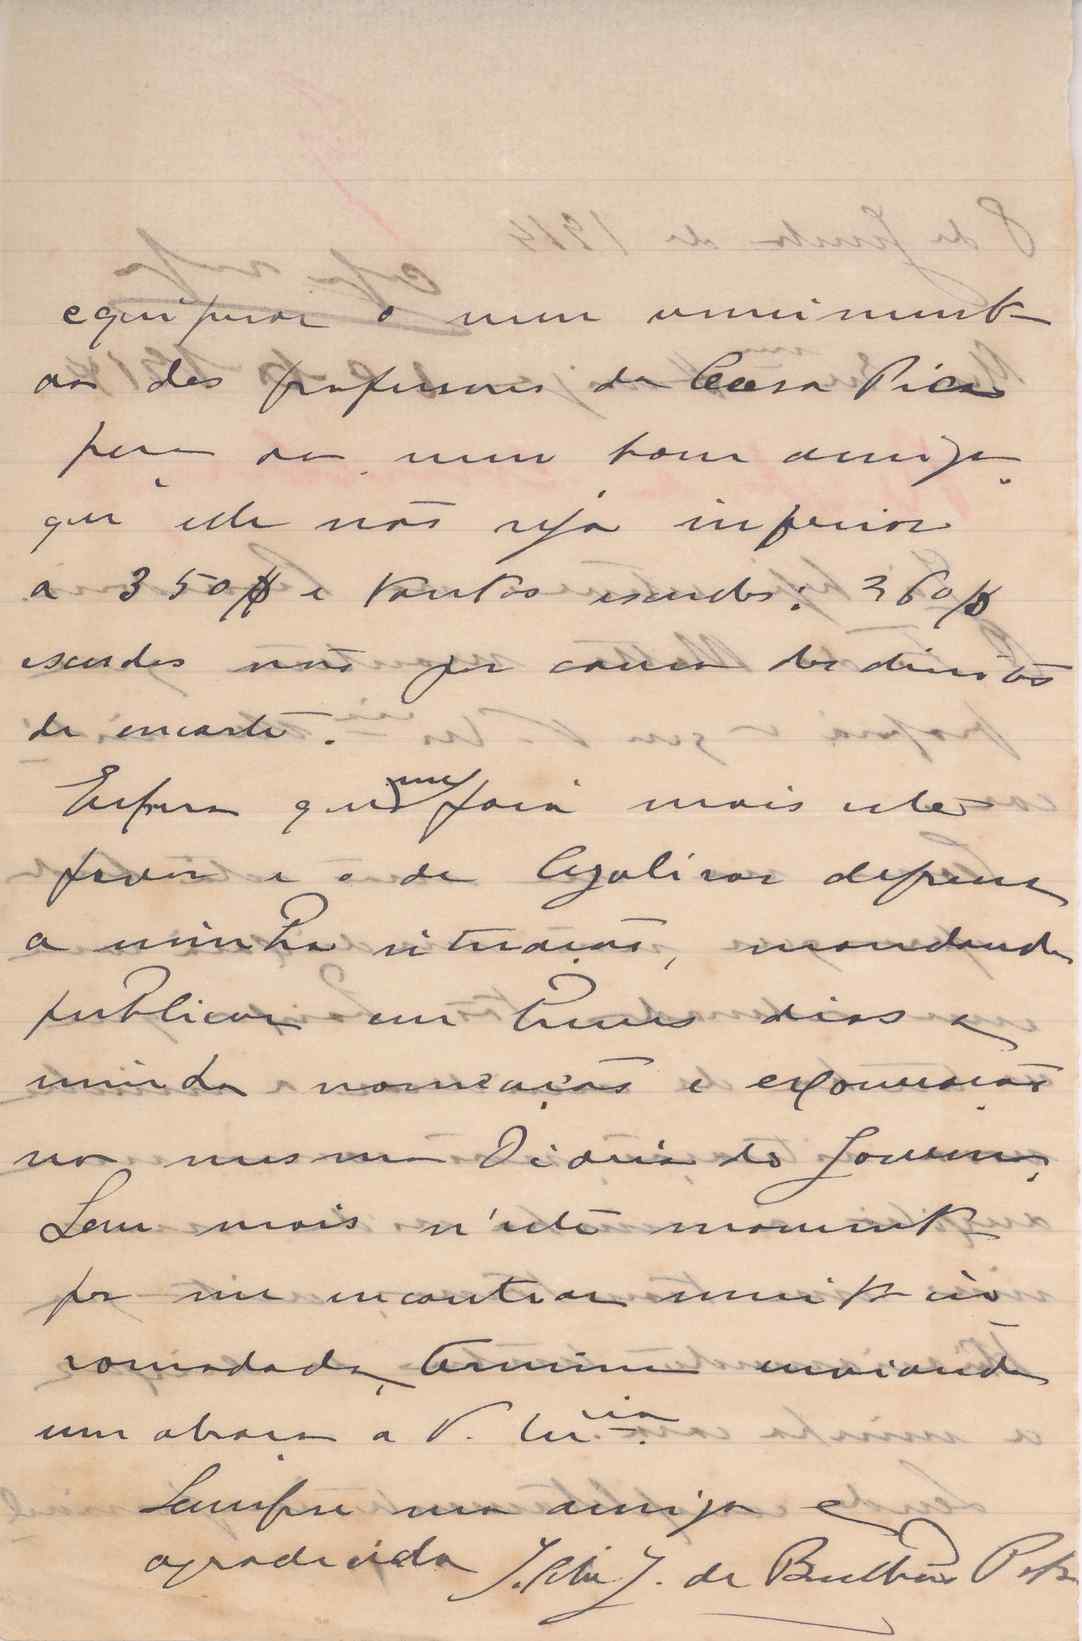 equiparar o meu vencimento
ao dos professores da Casa Pia
peço ao meu bom amigo
que este não seja inferior
a 350$ e tantos escudos: 360$
escudos não por causa dos direitos
de encarte.
Espero que me fará mais este
favor e o de legalisar depressa
a minha situação, mandando
publicar em breves dias a
minha nomeação e exoneração
no mesmo Diário do Governo,
Sem mais n'este momento
por me encontrar muito in
comodada, termino enviando
um abraço a V. Ex.cia
Sempre sua amiga e
agradecida J. de Bulhão Pato